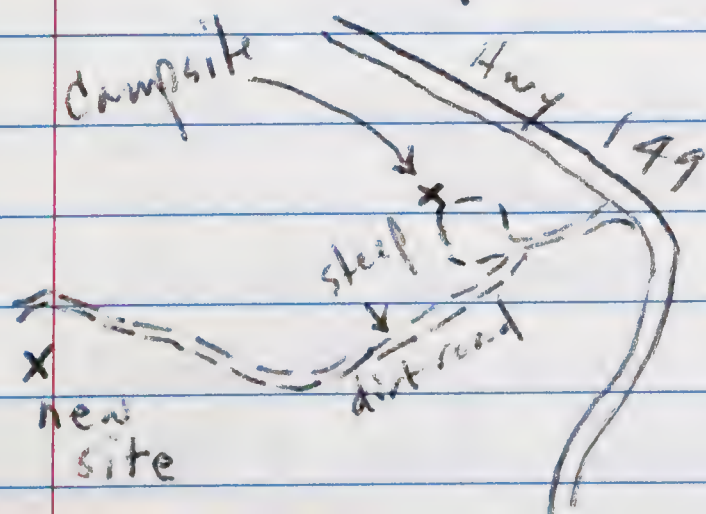 Campsite
Hwy 149
steep
dirt road
new
site